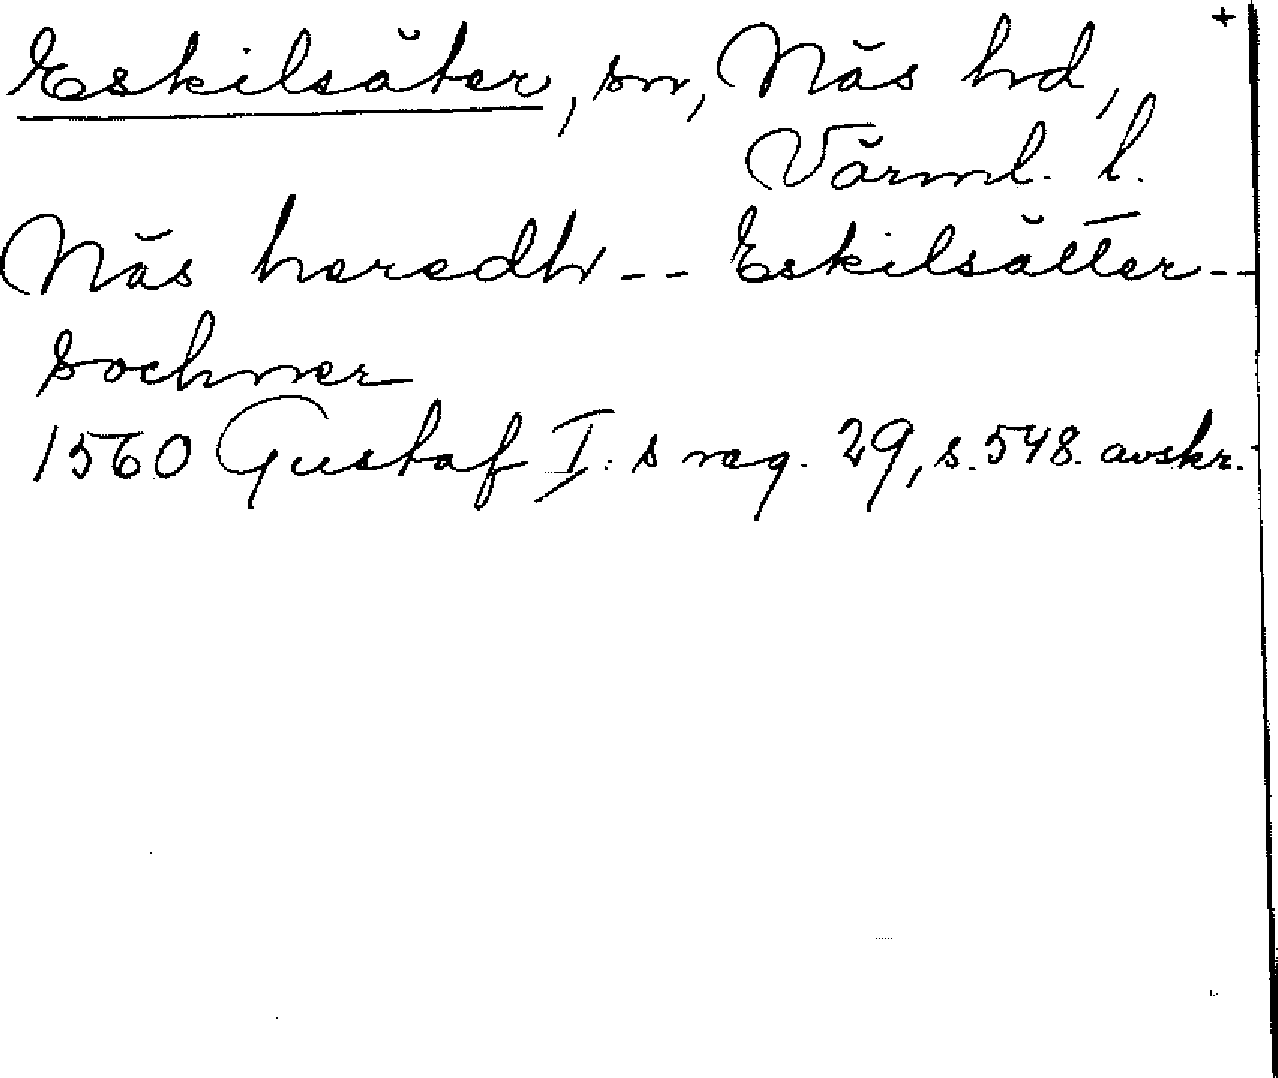 +
Eskilsäter, sn, Näs hd,
Värml. l.
Näsheredh -- Eskilsätter --
sochner
1560 Gustaf I:s reg. 29, s. 548. avskr.